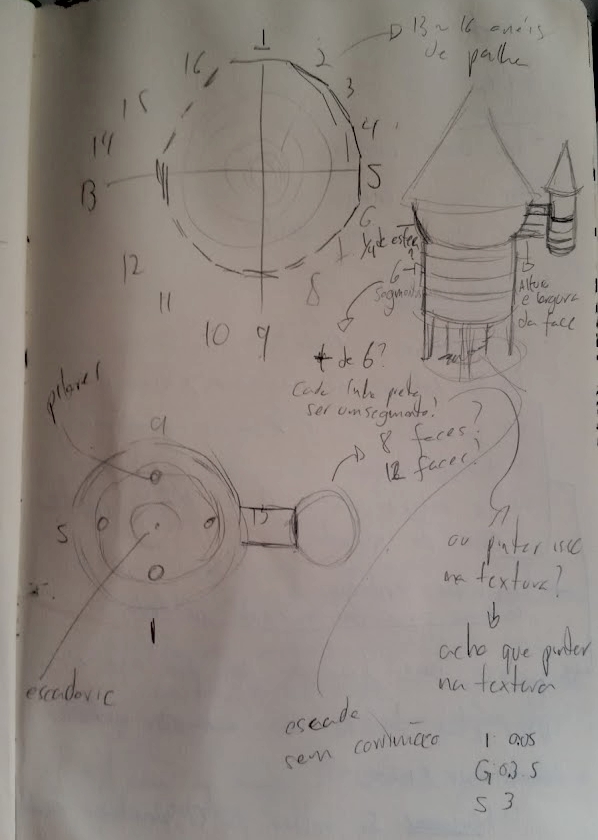 1
2
3
4
5
6
8
9
10
11
12
13
14
15
16
13 ~ 16 anéis
de palha
1/4 de esfera
6
segmentos
Altura
e largura
da face
+ de 6?
Cada linha preta
ser um segmento?
8 faces?
12 faces?
pilares
9
5
13
1
escadaria
ou pintar isso
na textura?
acho que pintar
na textura
escada
sem corrimão
1 0.05
G 0.3 5
S 3